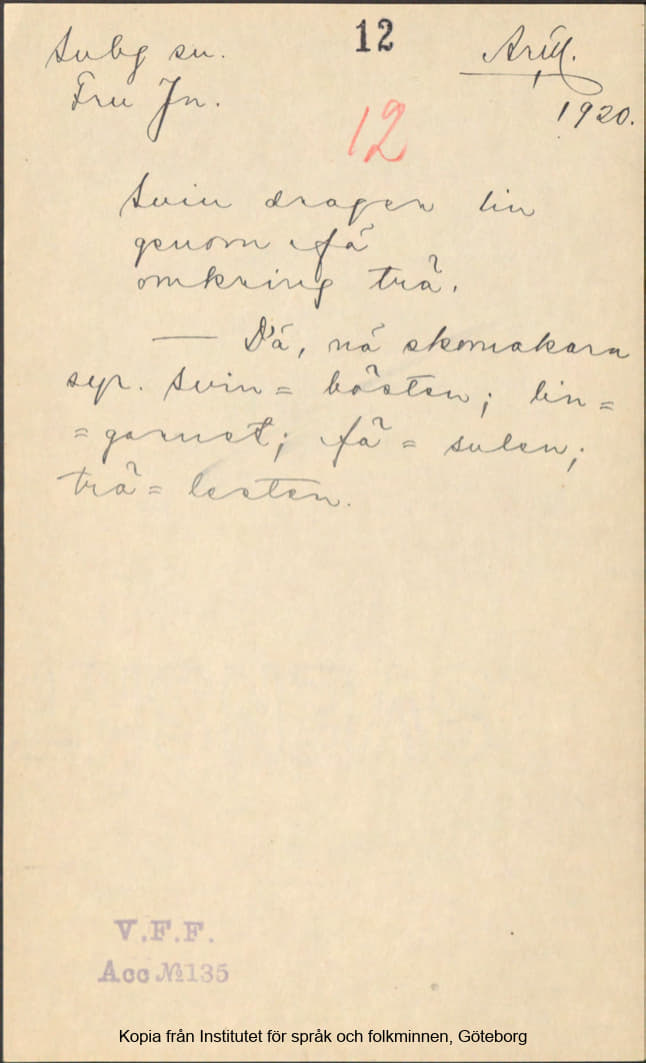 12
Subg sn.
Fru Jn.
Arill.
1920.
12
Svin drager lin
genom fä
omkring trä.
— Dä, nä skomakara
syr. Svin = bösten; lin =
= garnet; fä = sulen;
trä = lesten.
V.F.F.
Acc №135
Kopia från Institutet för språk och folkminnen, Göteborg